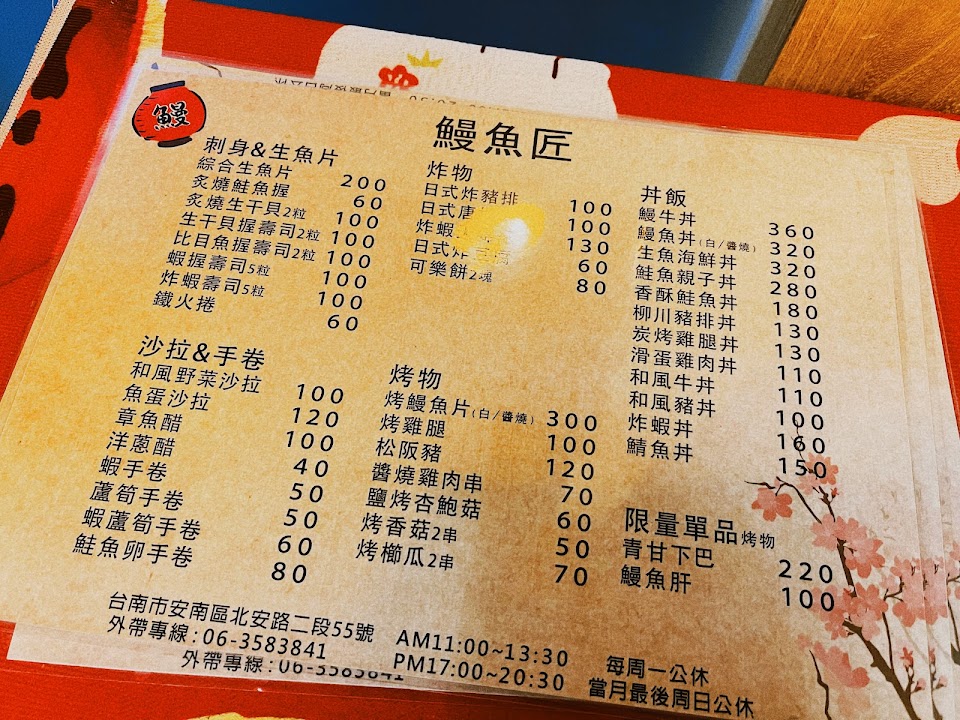 鰻
鰻魚匠
刺身&生魚片
綜合生魚片 200
炙燒鮭魚握 60
炙燒生干貝2粒 100
生干貝握壽司2粒 100
比目魚握壽司2粒 100
蝦握壽司5粒 100
炸蝦壽司5粒 100
鐵火捲 60
沙拉&手卷
和風野菜沙拉 100
魚蛋沙拉 120
章魚醋 100
洋蔥醋 40
蝦手卷 50
蘆筍手卷 50
蝦蘆筍手卷 60
鮭魚卵手卷 80
炸物
日式炸豬排 100
日式唐 100
炸蝦 130
日式炸 60
可樂餅2塊 80
烤物
烤鰻魚片(白/醬燒) 300
烤雞腿 100
松阪豬 120
醬燒雞肉串 70
鹽烤杏鮑菇 60
烤香菇2串 50
烤櫛瓜2串 70
丼飯
鰻牛丼 360
鰻魚丼(白/醬燒) 320
生魚海鮮丼 320
鮭魚親子丼 280
香酥鮭魚丼 180
柳川豬排丼 130
炭烤雞腿丼 130
滑蛋雞肉丼 110
和風牛丼 110
和風豬丼 100
炸蝦丼 160
鯖魚丼 150
限量單品烤物
青甘下巴 220
鰻魚肝 100
台南市安南區北安路二段55號
外帶專線:06-3583841
AM11:00~13:30
PM17:00~20:30
每周一公休
當月最後周日公休
外帶專線:06-3583841